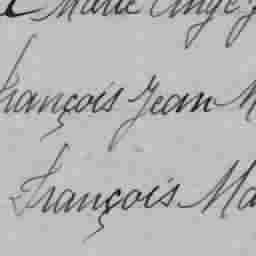 Marie Ange
François Jean M
François Ma